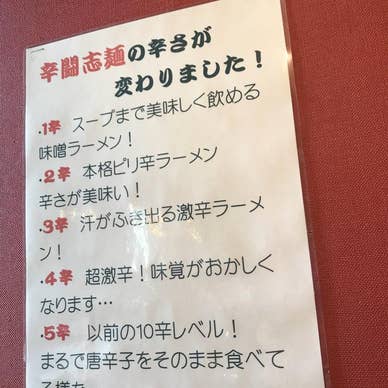 辛闘志麺の辛さが
変わりました！
・1辛 スープまで美味しく飲める
味噌ラーメン！
・2辛 本格ピリ辛ラーメン
辛さが美味い！
・3辛 汗がふき出る激辛ラーメ
ン！
・4辛 超激辛！味覚がおかしく
なります…
・5辛 以前の10辛レベル！
まるで唐辛子をそのまま食べて